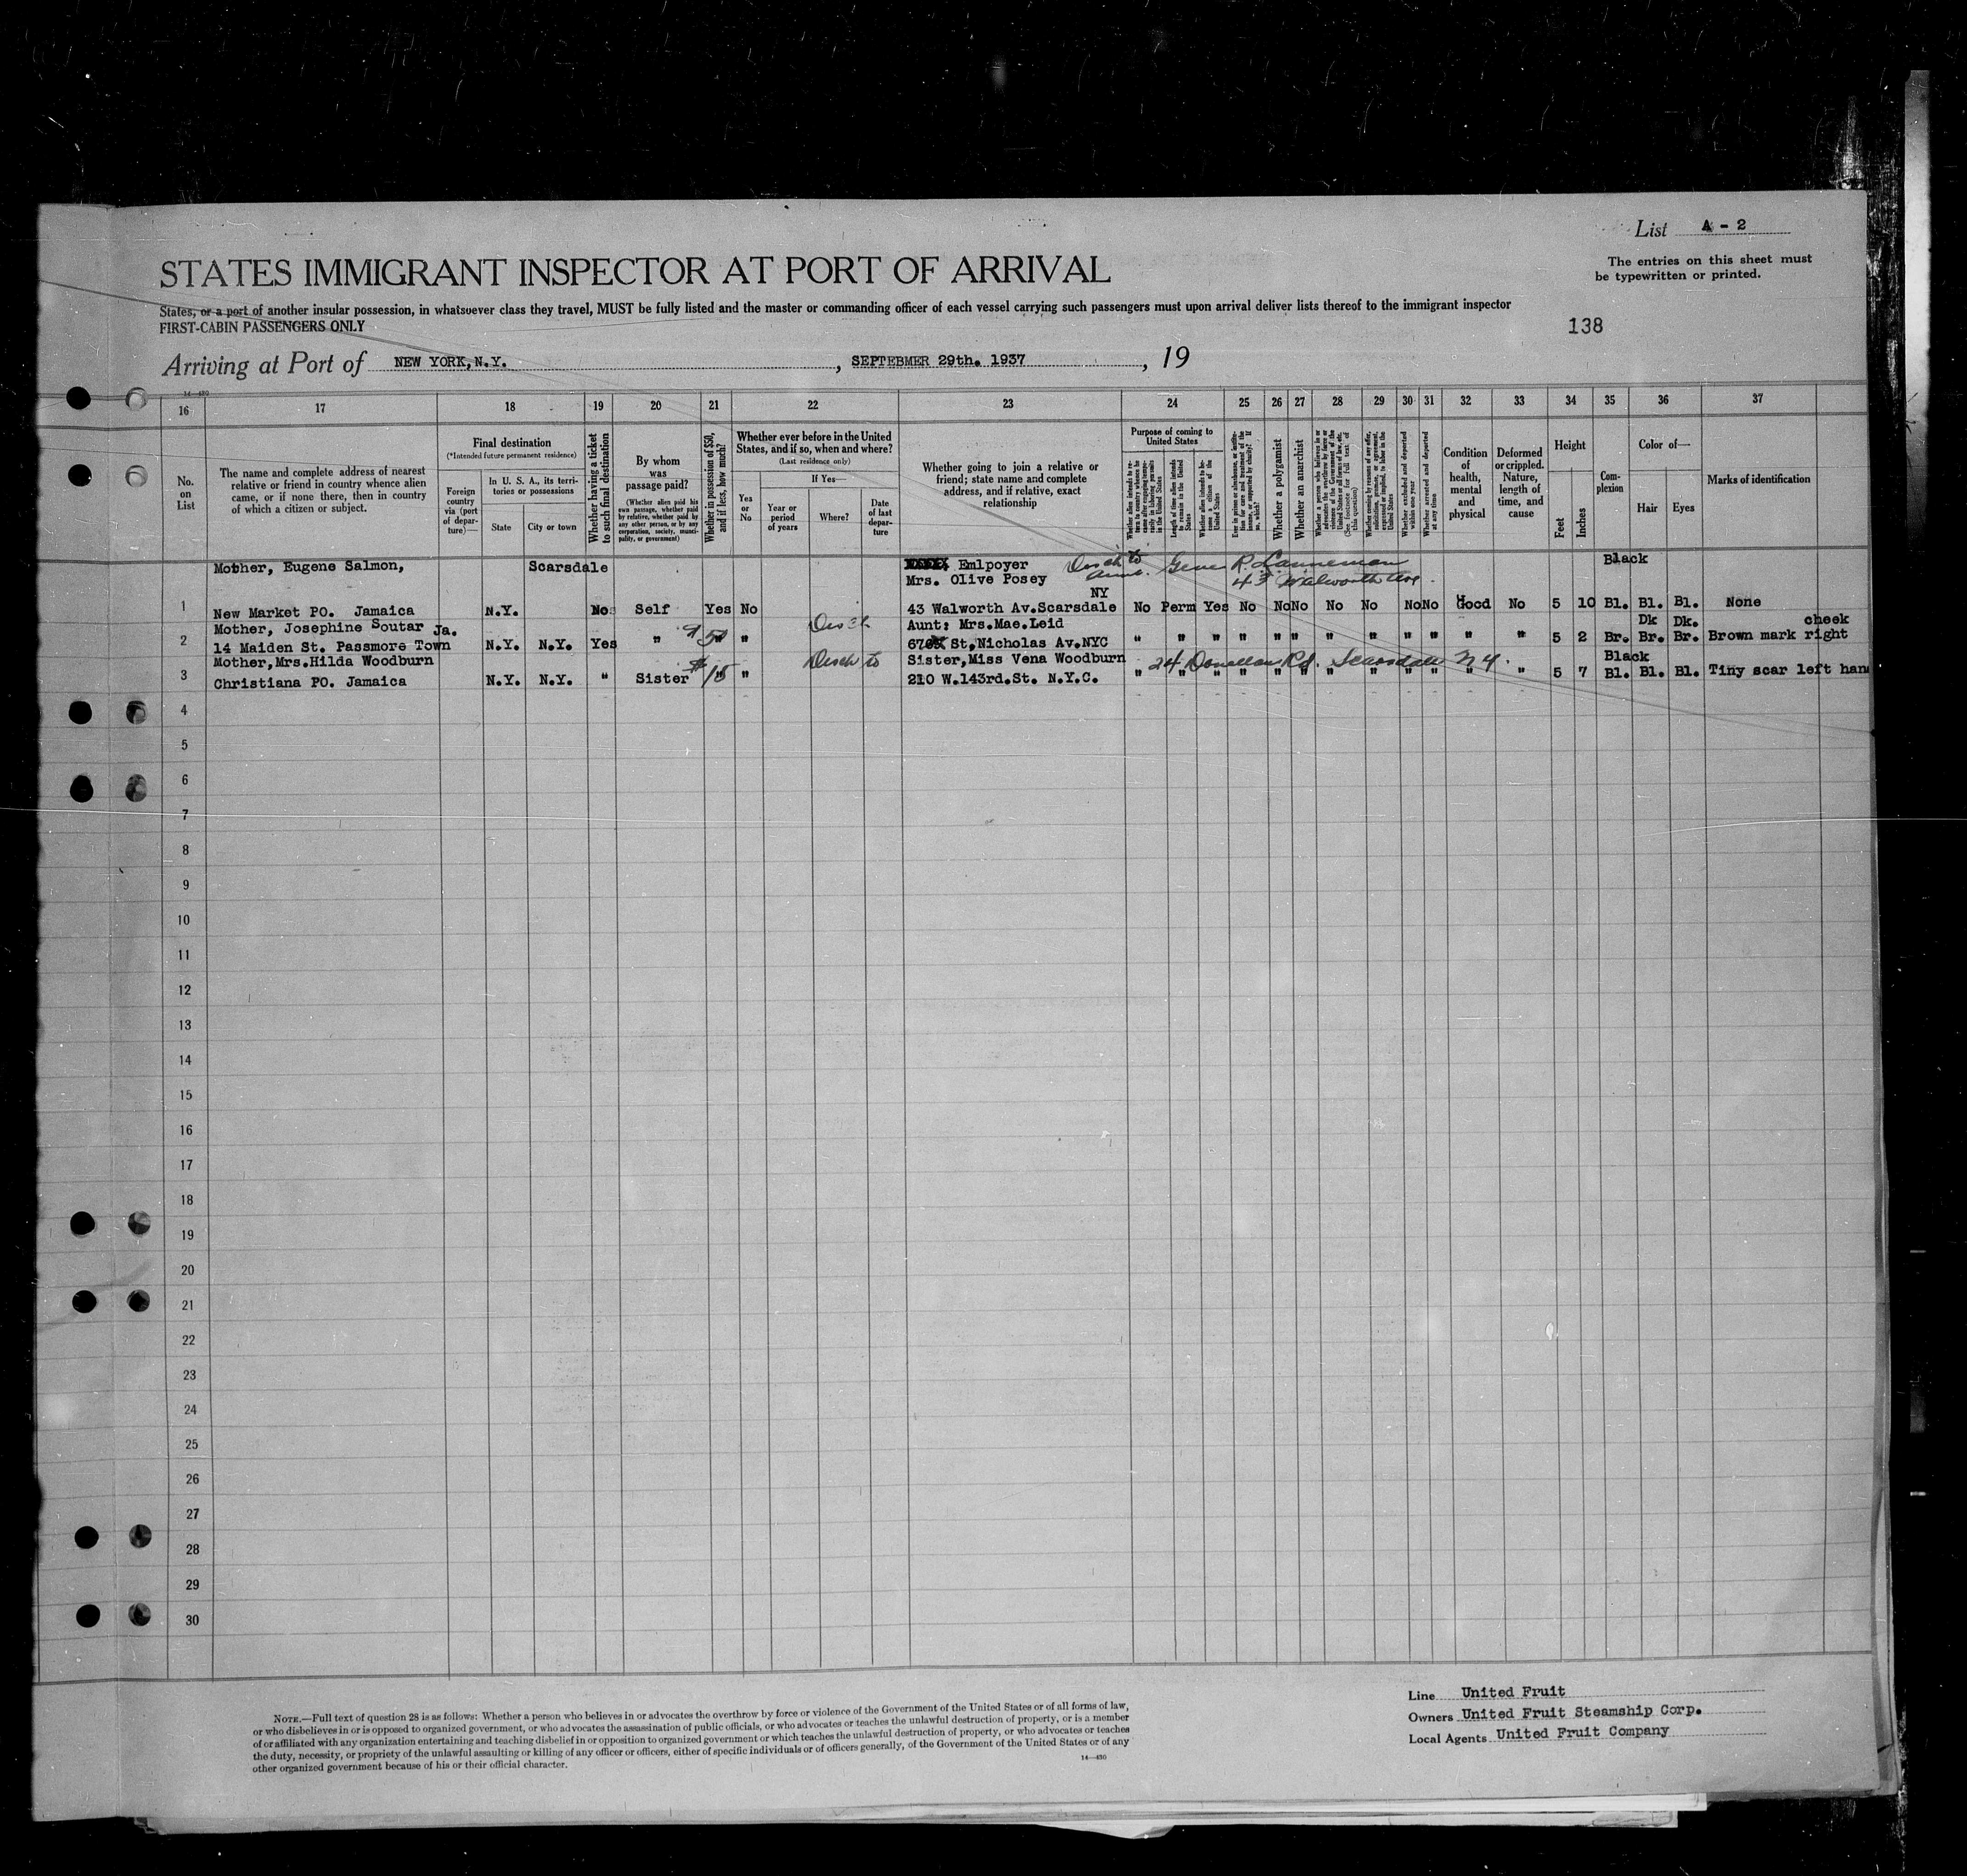 List A - 2
The entries on this sheet must
be typewritten or printed.
STATES IMMIGRANT INSPECTOR AT PORT OF ARRIVAL
States, or a port of another insular possession, in whatsoever class they travel, MUST be fully listed and the master or commanding officer of each vessel carrying such passengers must upon arrival deliver lists thereof to the immigrant inspector
FIRST-CABIN PASSENGERS ONLY
138
Arriving at Port of NEW YORK, N.Y. , SEPTEBMER 29th. 1937 , 19
14—430
16 17 18 19 20 21 22 23 24 25 26 27 28 29 30 31 32 33 34 35 36 37
No.
on
List
The name and complete address of nearest
relative or friend in country whence alien
came, or if none there, then in country
of which a citizen or subject.
Final destination
(*Intended future permanent residence)
Foreign
country
via (port
of depar-
ture)—
In U. S. A., its terri-
tories or possessions
State
City or town
Whether having a ticket
to such final destination
By whom
was
passage paid?
(Whether alien paid his
own passage, whether paid
by relative, whether paid by
any other person, or by any
corporation, society, munici-
pality, or government)
Whether in possession of $50,
and if less, how much?
Whether ever before in the United
States, and if so, when and where?
(Last residence only)
Yes
or
No
If Yes—
Year or
period
of years
Where?
Date
of last
depar-
ture
Whether going to join a relative or
friend; state name and complete
address, and if relative, exact
relationship
Purpose of coming to
United States
Whether alien intends to re-
turn to country whence he
came after engaging tempo-
rarily in laboring pursuits
in the United States
Length of time alien intends
to remain in the United
States
Whether alien intends to be-
come a citizen of the
United States
Ever in prison or almshouse, or institu-
tion for care and treatment of the
insane, or supported by charity? If
so, which?
Whether a polygamist
Whether an anarchist
Whether a person who believes in or
advocates the overthrow by force or
violence of the Government of the
United States or all forms of law, etc.
(See footnote for full text of
this question)
Whether coming by reasons of any offer,
solicitation, promise, or agreement,
expressed or implied, to labor in the
United States
Whether excluded and deported
within one year
Whether arrested and deported
at any time
Condition
of
health,
mental
and
physical
Deformed
or crippled.
Nature,
length of
time, and
cause
Height
Feet
Inches
Com-
plexion
Color of—
Hair
Eyes
Marks of identification
Mother, Eugene Salmon, Scarsdale Emlpoyer Disch to Black
Mrs. Olive Posey aunt. 43 Walworth Ave.
NY
1 New Market PO. Jamaica N.Y. No Self Yes No 43 Walworth Av.Scarsdale No Perm Yes No No No No No No No Good No 5 10 Bl. Bl. Bl. None
Mother, Josephine Soutar Ja. Disch Aunt: Mrs.Mae.Leid Dk Dk. cheek
2 14 Maiden St. Passmore Town N.Y. N.Y. Yes " 50 " St,Nicholas Av.NYC " " " " " " " " " " " " 5 2 Br. Br. Br. Brown mark right
Mother,Mrs.Hilda Woodburn Disch to Sister,Miss Vena Woodburn 24 Donellan Rd. Scarsdale N.Y. Black
3 Christiana PO. Jamaica N.Y. N.Y. " Sister $15 " 210 W.143rd.St. N.Y.C. " " " " " " " " " " " " 5 7 Bl. Bl. Bl. Tiny scar left hand
4
5
6
7
8
9
10
11
12
13
14
15
16
17
18
19
20
21
22
23
24
25
26
27
28
29
30
NOTE.—Full text of question 28 is as follows: Whether a person who believes in or advocates the overthrow by force or violence of the Government of the United States or of all forms of law,
or who disbelieves in or is opposed to organized government, or who advocates the assassination of public officials, or who advocates or teaches the unlawful destruction of property, or is a member
of or affiliated with any organization entertaining and teaching disbelief in or opposition to organized government or which teaches the unlawful destruction of property, or who advocates or teaches
the duty, necessity, or propriety of the unlawful assaulting or killing of any officer or officers, either of specific individuals or of officers generally, of the Government of the United States or of any
other organized government because of his or their official character.
14—430
Line United Fruit
Owners United Fruit Steamship Corp.
Local Agents United Fruit Company